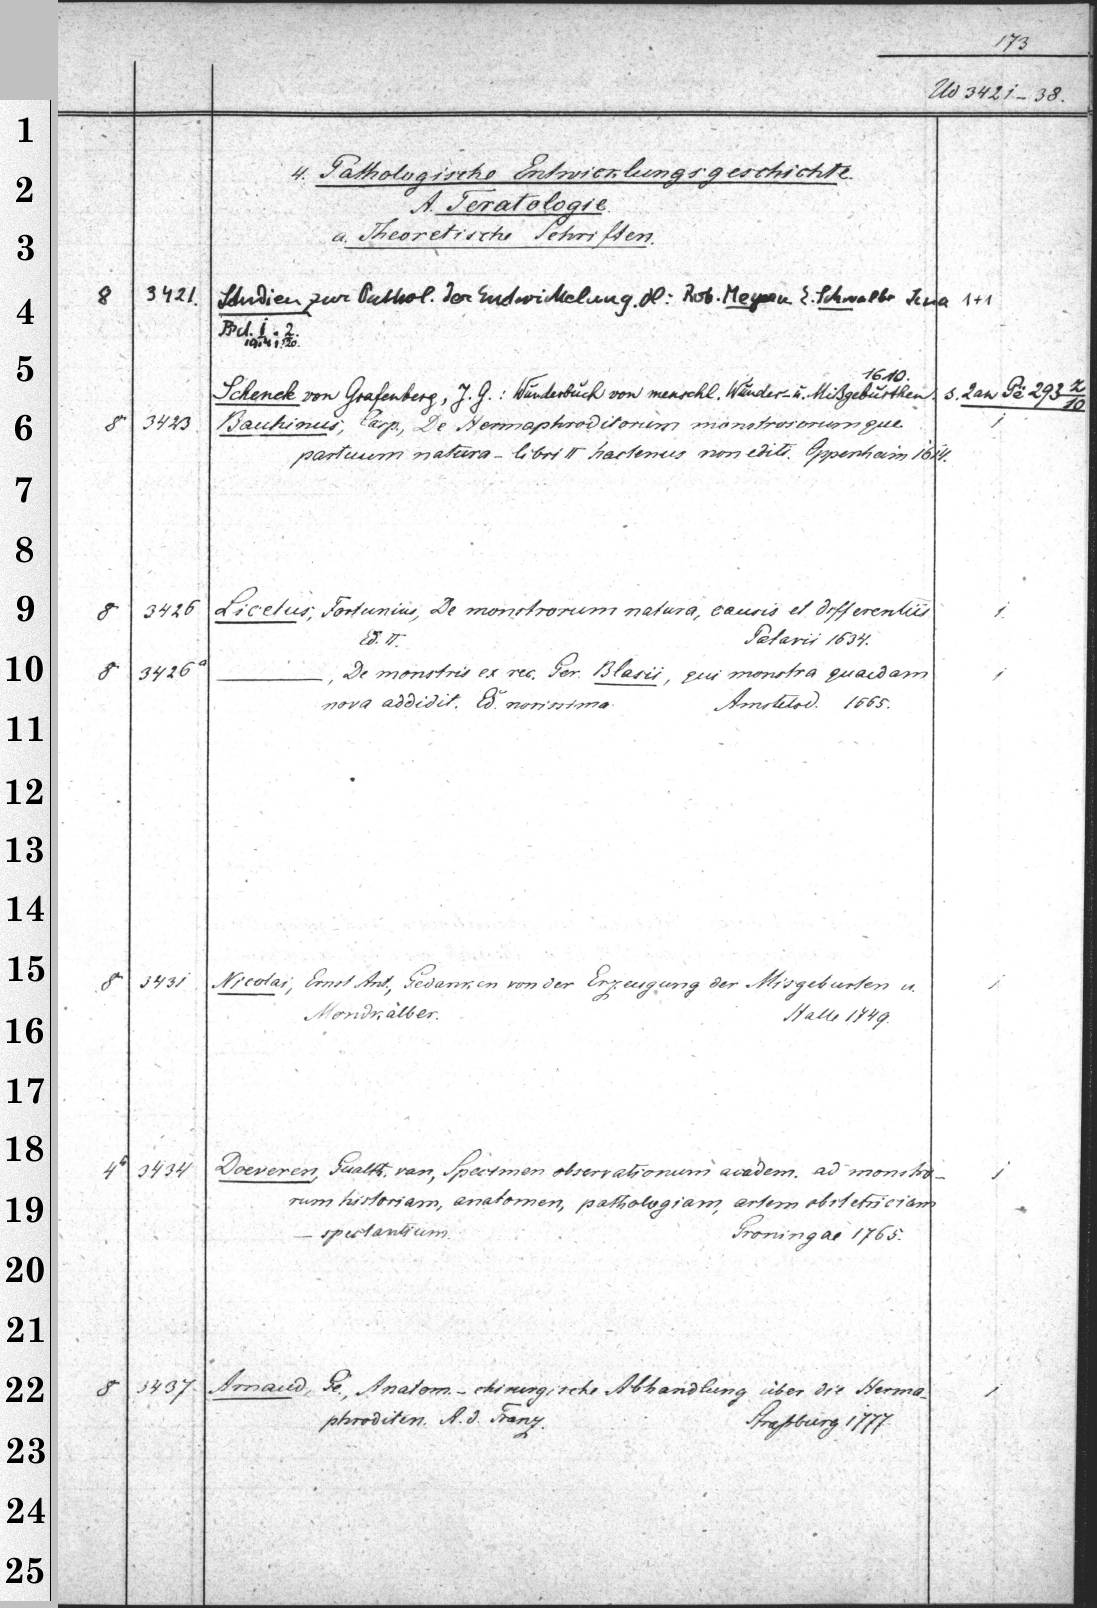 173
Ud 3421-38.
4. Pathologische Entwicklungsgeschichte.
A. Teratologie.
a. Theoretische Schriften.
8 3421. Studien zur Pathol. der Entwickelung. Hl: Rob. Meyer u. E. Schwalbe Jena 1+1
Bd. 1. 2.
1914. 1920.
1610.
Schenck von Grafenberg, J. G.: Wunderbuch von menschl. Wunder- u. Mißgeburthen. s. 2 an Pe 293 2/10
8 3423 Bauhinus, Casp., De Hermaphroditorum monstrosorumque 1
partuum natura - libri II hactenus non editi. Oppenheim 1614.
8 3426 Licetus, Fortunius, De monstrorum natura, causis et differentiis 1
Ed. II. Patavii 1634.
8 3426a ———, De monstris ex rec. Ger. Blasii, qui monstra quaedam 1
nova addidit. Ed. novissima. Amstelod. 1665.
8 3431 Nicolai, Ernst Ant., Gedanken von der Erzeugung der Misgeburten u. 1
Mondkälber. Halle 1749.
4b 3434 Doeveren, Gualth. van, Specimen observationum academ. ad monstro- 1
rum historiam, anatomen, pathologiam, artem obstetriciam
- spectantium. Groningae 1765.
8 3437 Arnaud, Ge., Anatom.-chirurgische Abhandlung über die Herma- 1
phroditen. A. d. Franz. Straßburg 1777.
1
2
3
4
5
6
7
8
9
10
11
12
13
14
15
16
17
18
19
20
21
22
23
24
25